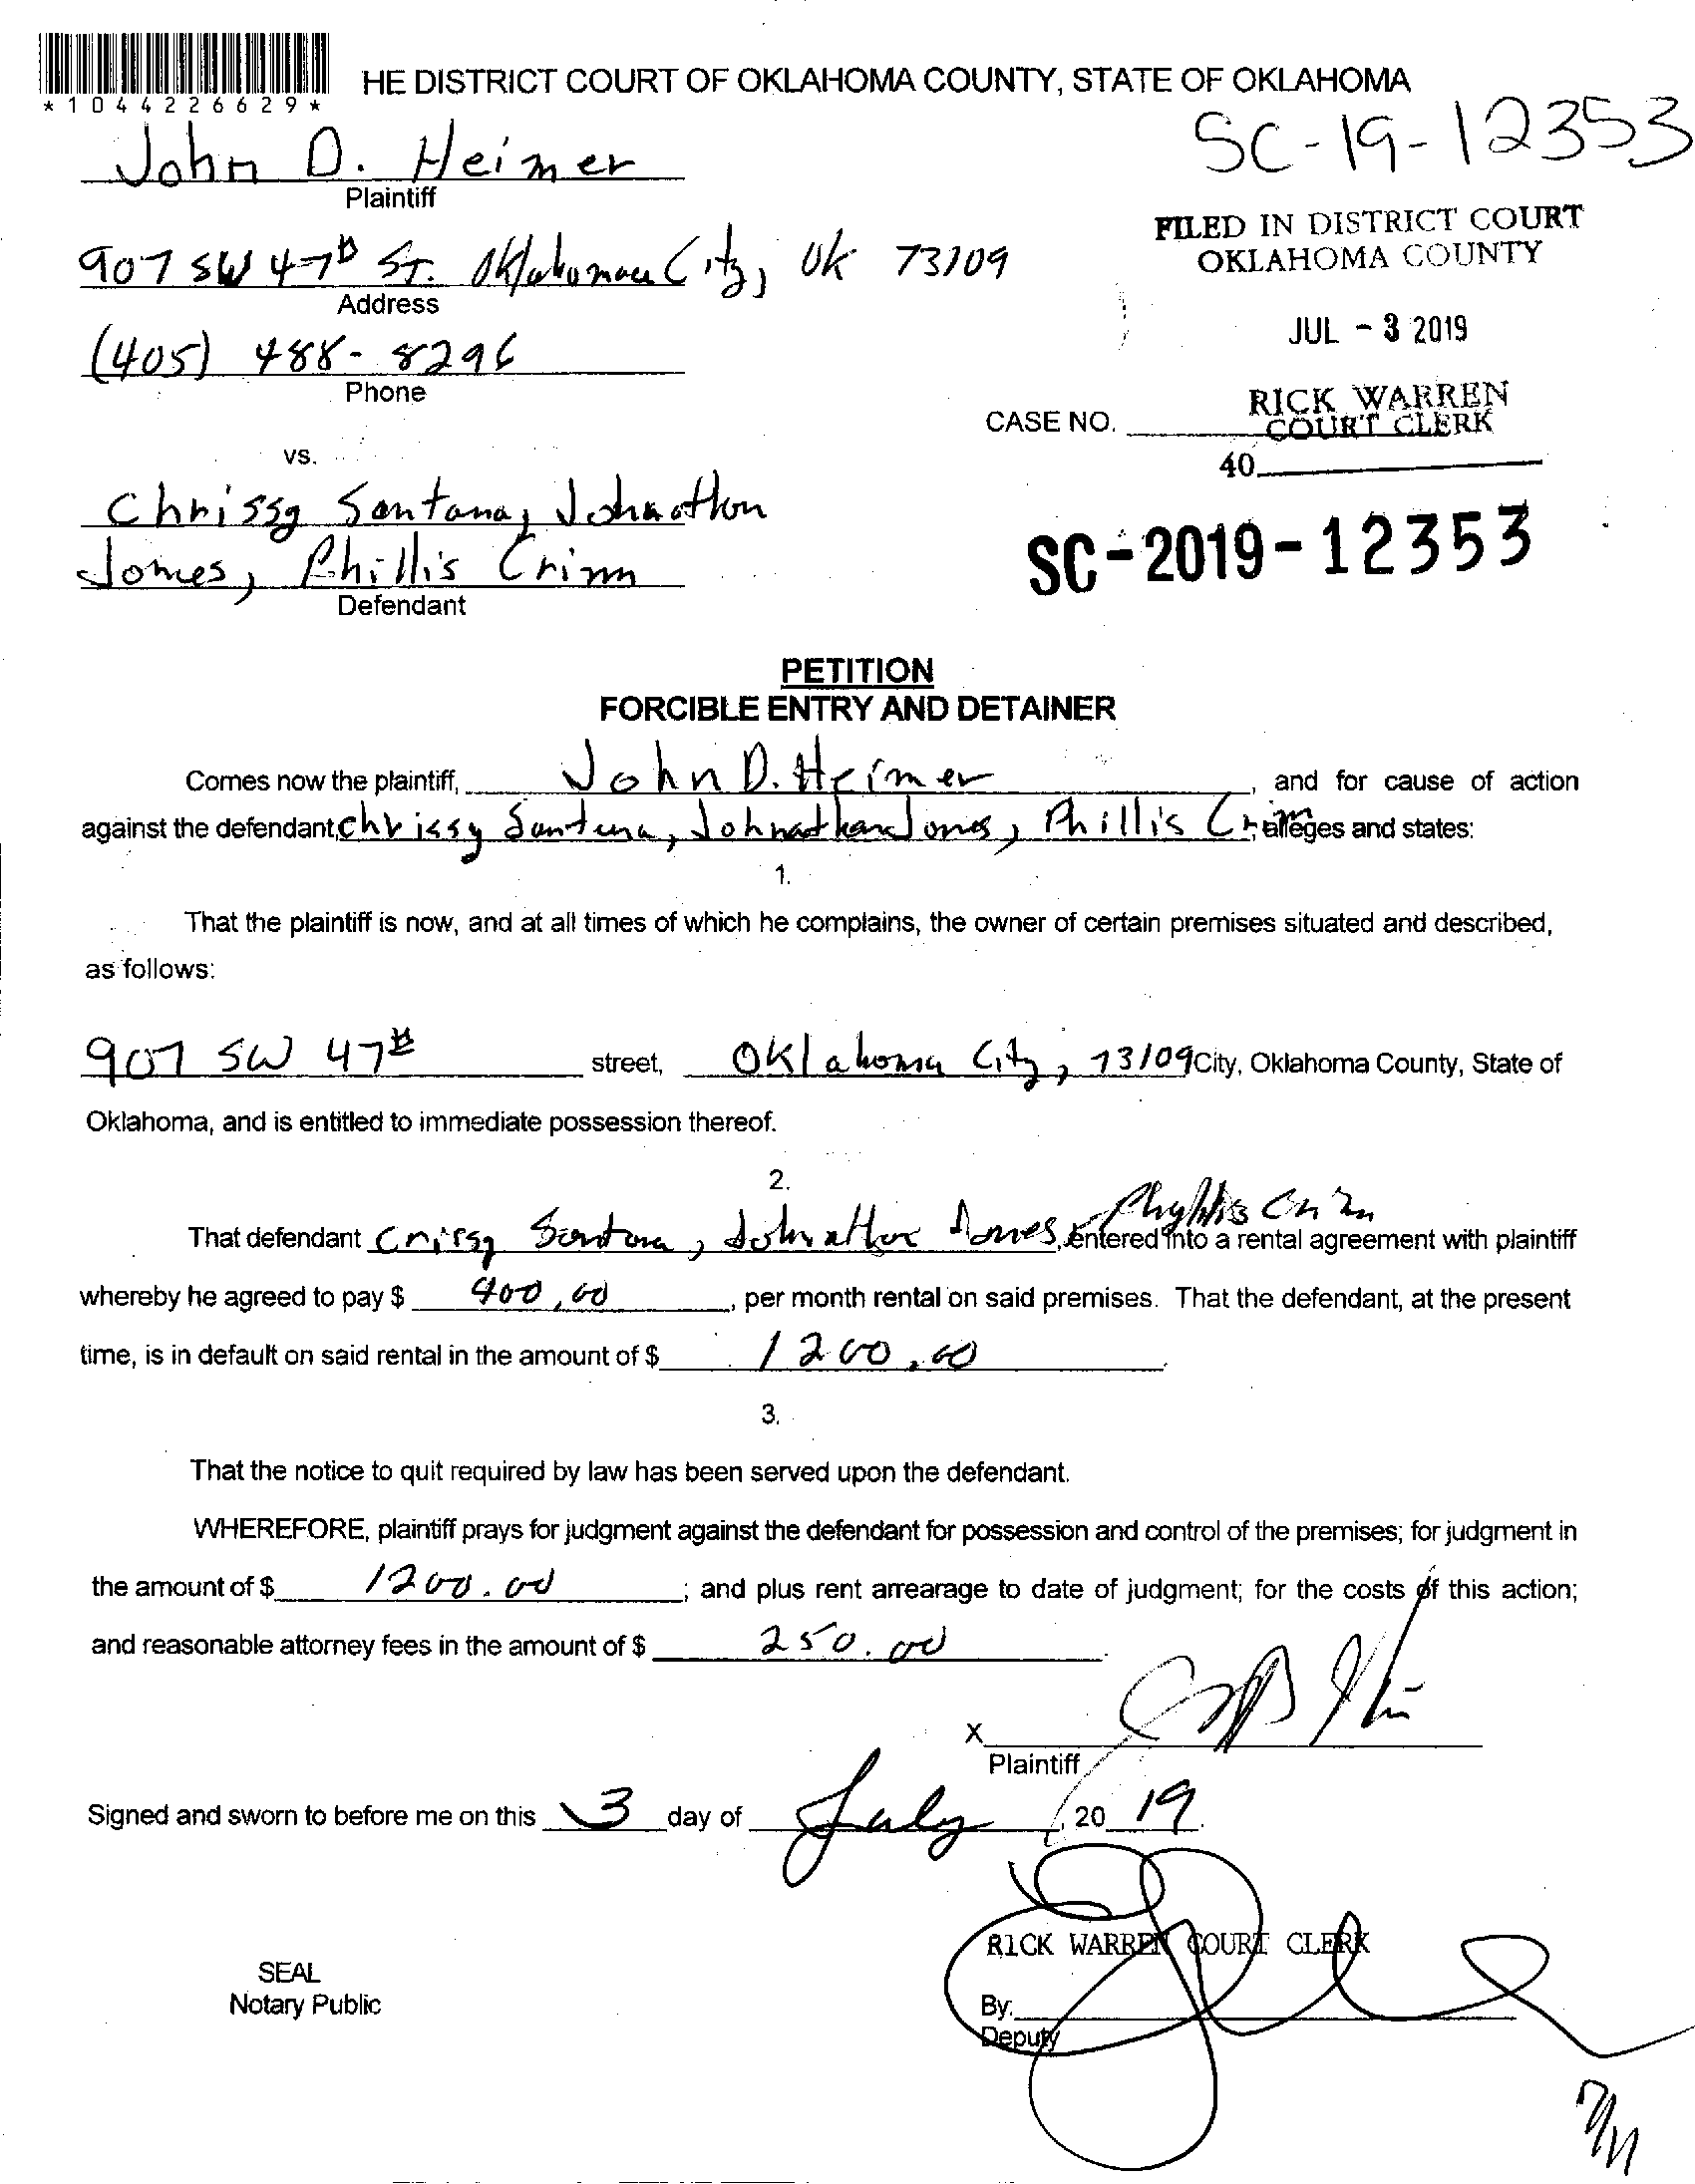 HE DISTRICT COURT OF OKLAHOMA COUNTY, STATE OF OKLAHOMA
*1044226629*
SC-19-12353
John D. Heimer
Plaintiff
FILED IN DISTRICT COURT
OKLAHOMA COUNTY
907 SW 47th ST. Oklahoma City, OK 73109
Address
JUL - 3 2019
(405) 488-8296
Phone
RICK WARREN
COURT CLERK
CASE NO.
40
vs.
Chrissy Santana, Johnathon
Jones, Phillis Crimm
Defendant
SC-2019-12353
PETITION
FORCIBLE ENTRY AND DETAINER
Comes now the plaintiff, John D. Heimer, and for cause of action
against the defendant, Chrissy Santana, Johnathan Jones, Phillis Crim alleges and states:
1.
That the plaintiff is now, and at all times of which he complains, the owner of certain premises situated and described,
as follows:
907 SW 47th street, Oklahoma City, 73109 City, Oklahoma County, State of
Oklahoma, and is entitled to immediate possession thereof.
2.
That defendant Crissy Santana, Johnathon Jones, Phyllis Crim entered into a rental agreement with plaintiff
whereby he agreed to pay $ 400.00, per month rental on said premises. That the defendant, at the present
time, is in default on said rental in the amount of $ 1200.00.
3.
That the notice to quit required by law has been served upon the defendant.
WHEREFORE, plaintiff prays for judgment against the defendant for possession and control of the premises; for judgment in
the amount of $ 1200.00; and plus rent arrearage to date of judgment; for the costs of this action;
and reasonable attorney fees in the amount of $ 250.00.
X
Plaintiff
Signed and sworn to before me on this 3 day of July, 20 19.
RICK WARREN COURT CLERK
SEAL
Notary Public
By:
Deputy